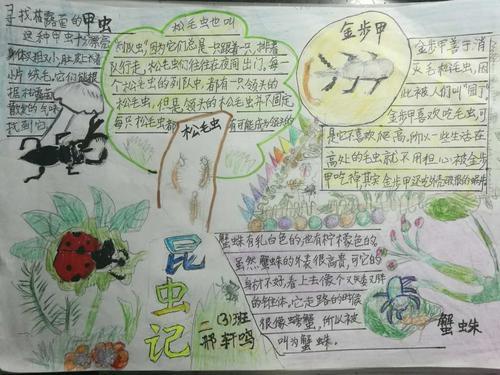 寻找蔷露茴的甲虫
这种甲虫十分漂亮
身体又粗又小,肚皮上有
片绒毛,它们能根
据
散发的
找到它
松毛虫也叫
列队虫,因为它们总是一只跟着一只,排着
队行走,松毛虫们往往在夜间出门,每一
个松毛虫的列队中,都有一只领头的
松毛虫,但是领头的松毛虫并不固定,
每只松毛虫都有可能成为领头的
松毛虫
金步甲
金步甲善于消
灭毛毛虫,因
此被人们叫"园丁"
金步甲喜欢吃毛虫,可
是它不喜欢爬高,所以一些生活在
高处的毛虫就不用担心被金步
甲吃掉,其实金步甲还吃外壳很狠的蜗牛
昆虫记
二(3)班
邢轩鸣
蟹蛛有乳白色的,也有柠檬色的,
虽然蟹蛛的外表很高贵,可它的
身材不好,看上去像个又矮又胖
的锥体,它走路的时候
很像螃蟹,所以被
叫为蟹蛛.
蟹蛛